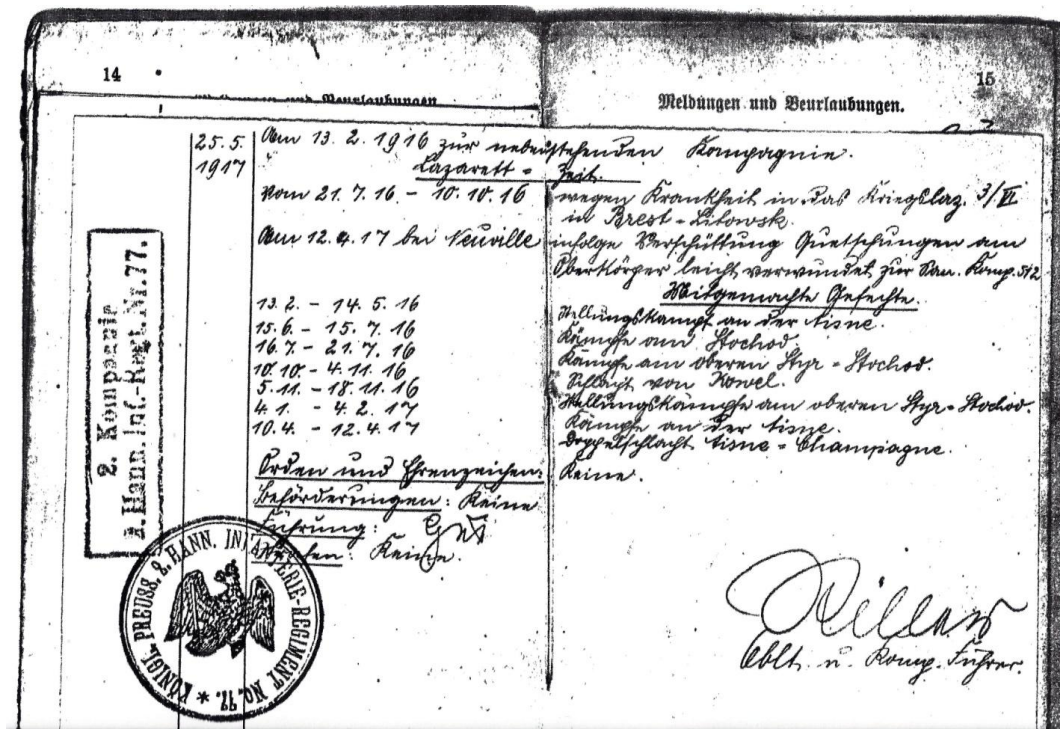 14
15
Meldungen und Beurlaubungen.
und Beurlaubungen
25.5. Am 13. 2. 1916 zur nebenstehenden Kompagnie.
1917 Lazarett = Zeit.
vom 21. 7. 16 - 10. 10. 16 wegen Krankheit in das Kriegslaz. 3/VI
in Brest-Litowsk.
Am 12.4.17 bei Neuville infolge Verschüttung Quetschungen am
Oberkörper leicht verwundet zur San. Komp. 512
Mitgemachte Gefechte.
13. 2. - 14. 5. 16 Stellungskampf an der Aisne.
15. 6. - 15. 7. 16 Kämpfe am Stochod.
16. 7. - 21. 7. 16 Kämpfe am oberen Styr-Stochod.
10. 10. - 4. 11. 16 Schlacht von Kowel.
5. 11. - 18. 11. 16 Stellungskämpfe am oberen Styr-Stochod.
4. 1. - 4. 2. 17 Kämpfe an der Aisne.
10. 4. - 12. 4. 17 Doppelschlacht Aisne-Champagne.
Orden und Ehrenzeichen: Keine.
Beförderungen: Keine
Führung: Gut
Strafen: Keine.
Oblt. u. Komp. Führer.
2. Kompanie
2. Hann. Inf.-Regt. Nr. 77.
KÖNIGL. PREUSS. 2. HANN. INFANTERIE-REGIMENT No. 77. *